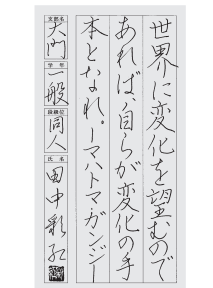 世界に変化を望むので
あれば、自らが変化の手
本となれ。ーマハトマ・ガンジー
支部名
大門
学年
一般
段級位
同人
氏名
田中彩